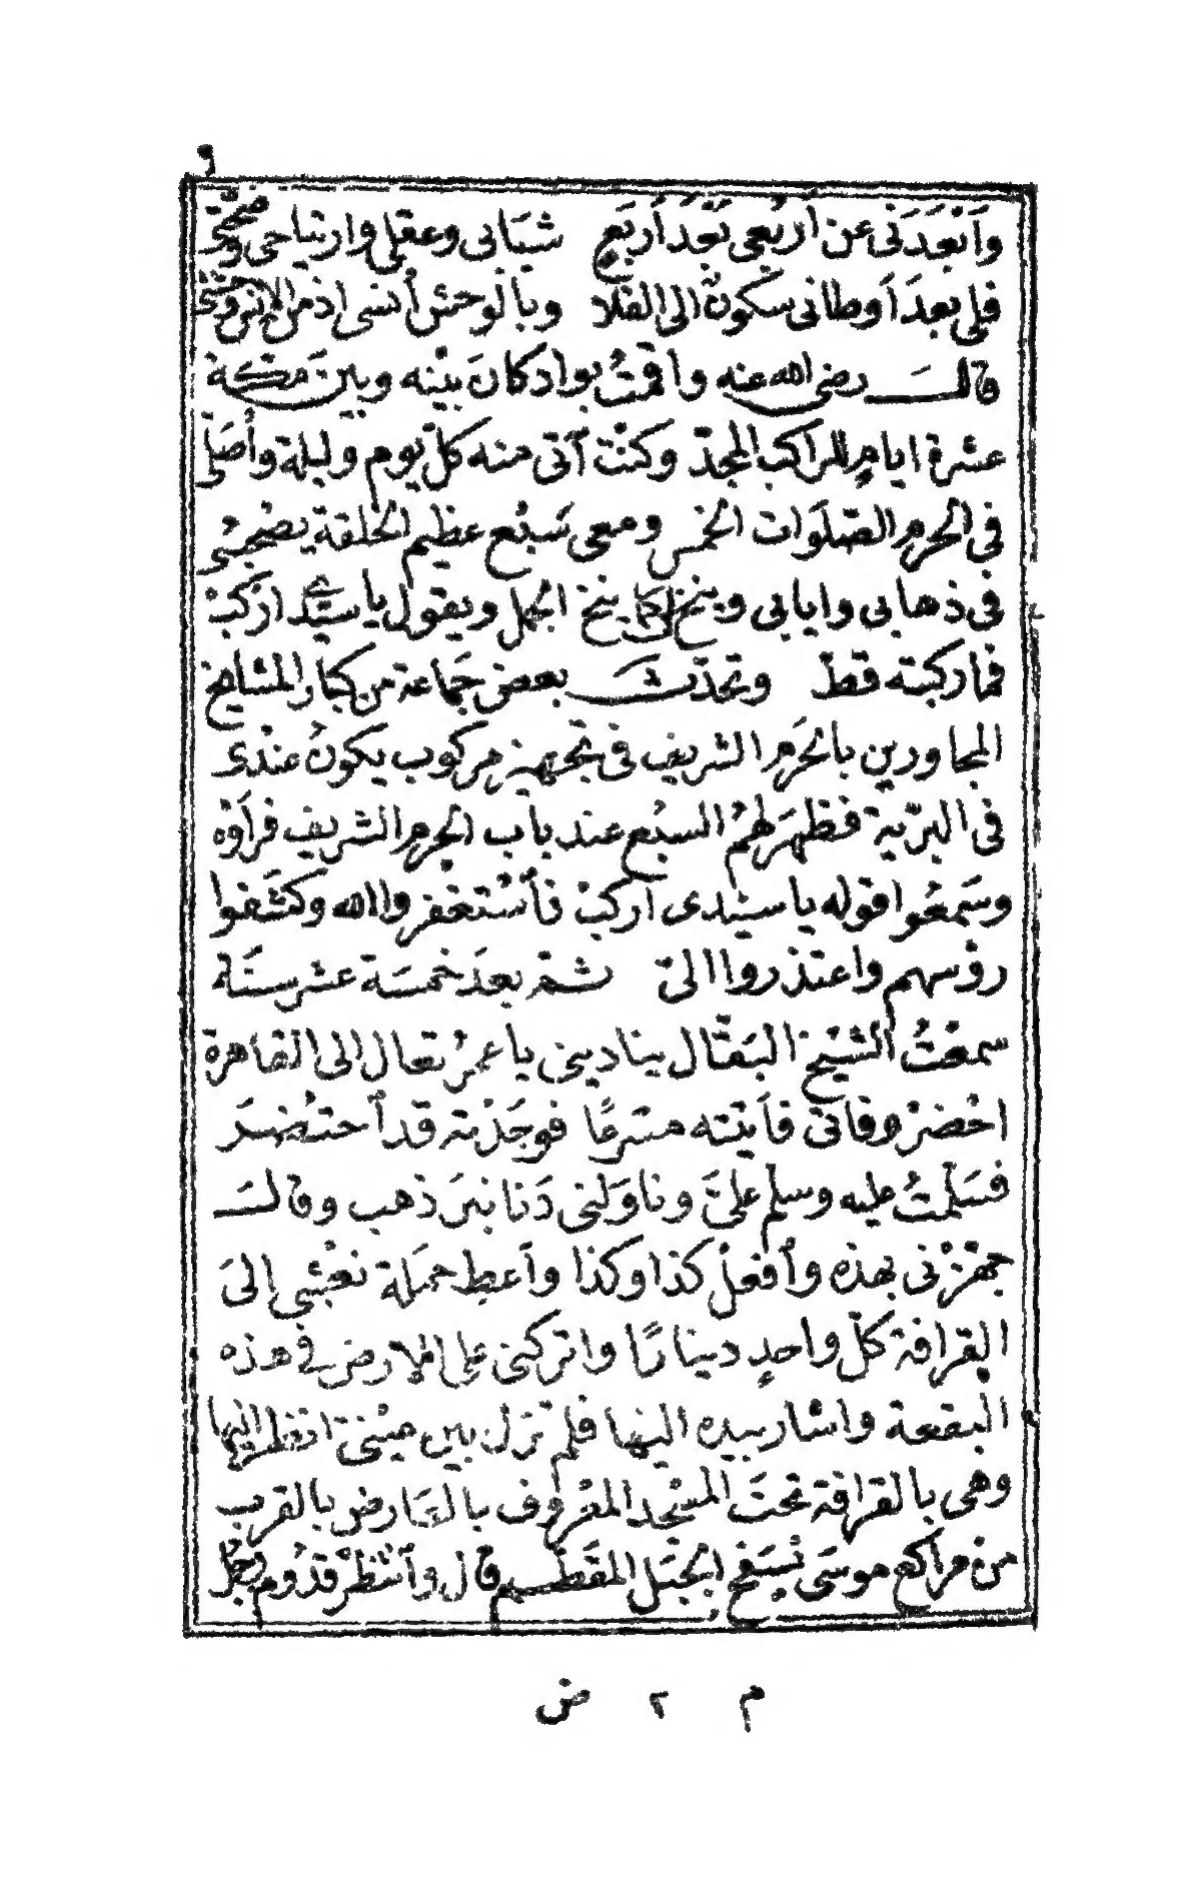 ٩
وَأَبْعَدَنى عن أَرْبُعى بُعْدُ أَرْبَعٍ شبَابى وعقلى وارتياحى وصحّتى
فلى بعدَ أوطانى سكونٌ الى الفلا وبالوحش أنسى اذ من الإنس وحشتى
قالَ رضى الله عنه وأقمتُ بواد كانَ بيْنه وبينَ مكّة
عشرة ايامٍ للراكب المجدّ وكنْت آتى منه كلّ يوم وليلة وأصَلّى
فى الحرم الصّلوَات الخمس ومعى سَبُع عظيم الخلقة يصْحبُنى
فى ذهابى وايابى وينخ لى كما ينخ الجمل ويقول يا سيّدى ارْكبْ
فما ركبته قطّ وتحدّثَ بعض جَماعة من كبار المشايخ
المجاورين بالحَرم الشريف فى تجهيز مركوب يكونُ عندى
فى البرّية فظهَر لهمُ السبُع عند باب الحرم الشريف فرأوْه
وسَمعُوا قوله يا سيّدى اركبْ فأسْتغفروا الله وكشَفوا
رؤسهم واعتذروا الىّ ثمّ بعدَ خمسَة عشر سنَة
سمعْتُ الشيْخ البَقّال ينادينى يا عمرُ تعال الى القاهرة
احْضرْ وفاتى فأتيته مسْرعًا فوجَدْته قد أحتُضرَ
فسَلّمتُ عليه وسلم علىَّ وناوَلنى دَنانيرَ ذهب وقالَ
جهّزْنى بهذه وأفعلْ كذا وكذا وأعطِ حمَلة نعْشى إلىَ
القرافة كلّ واحدٍ دينارًا واتركنى على الارض فى هذه
البقعة واشار بيده اليْها فلم تزل بين عيْنىّ انظر اليها
وهى بالقرافة تحتَ المسْجد المعْروف بالعَارض بالقرب
منْ مراكع موسَى بسَفح الجبَل المقَطّم قال وأنتظرْ قدُوم رجُل
م ٢ ض